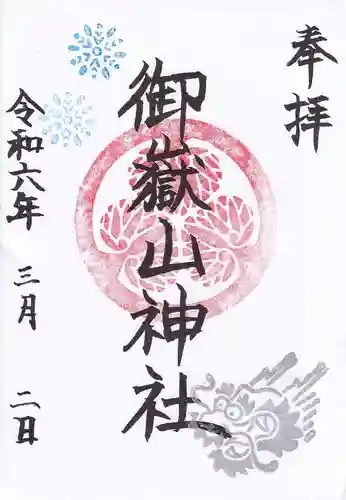 奉拝
御嶽山神社
令和六年 三月 二日